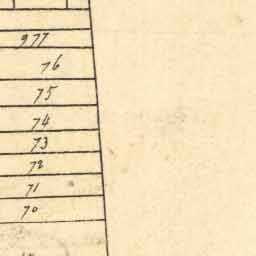 977
76
75
74
73
72
71
70